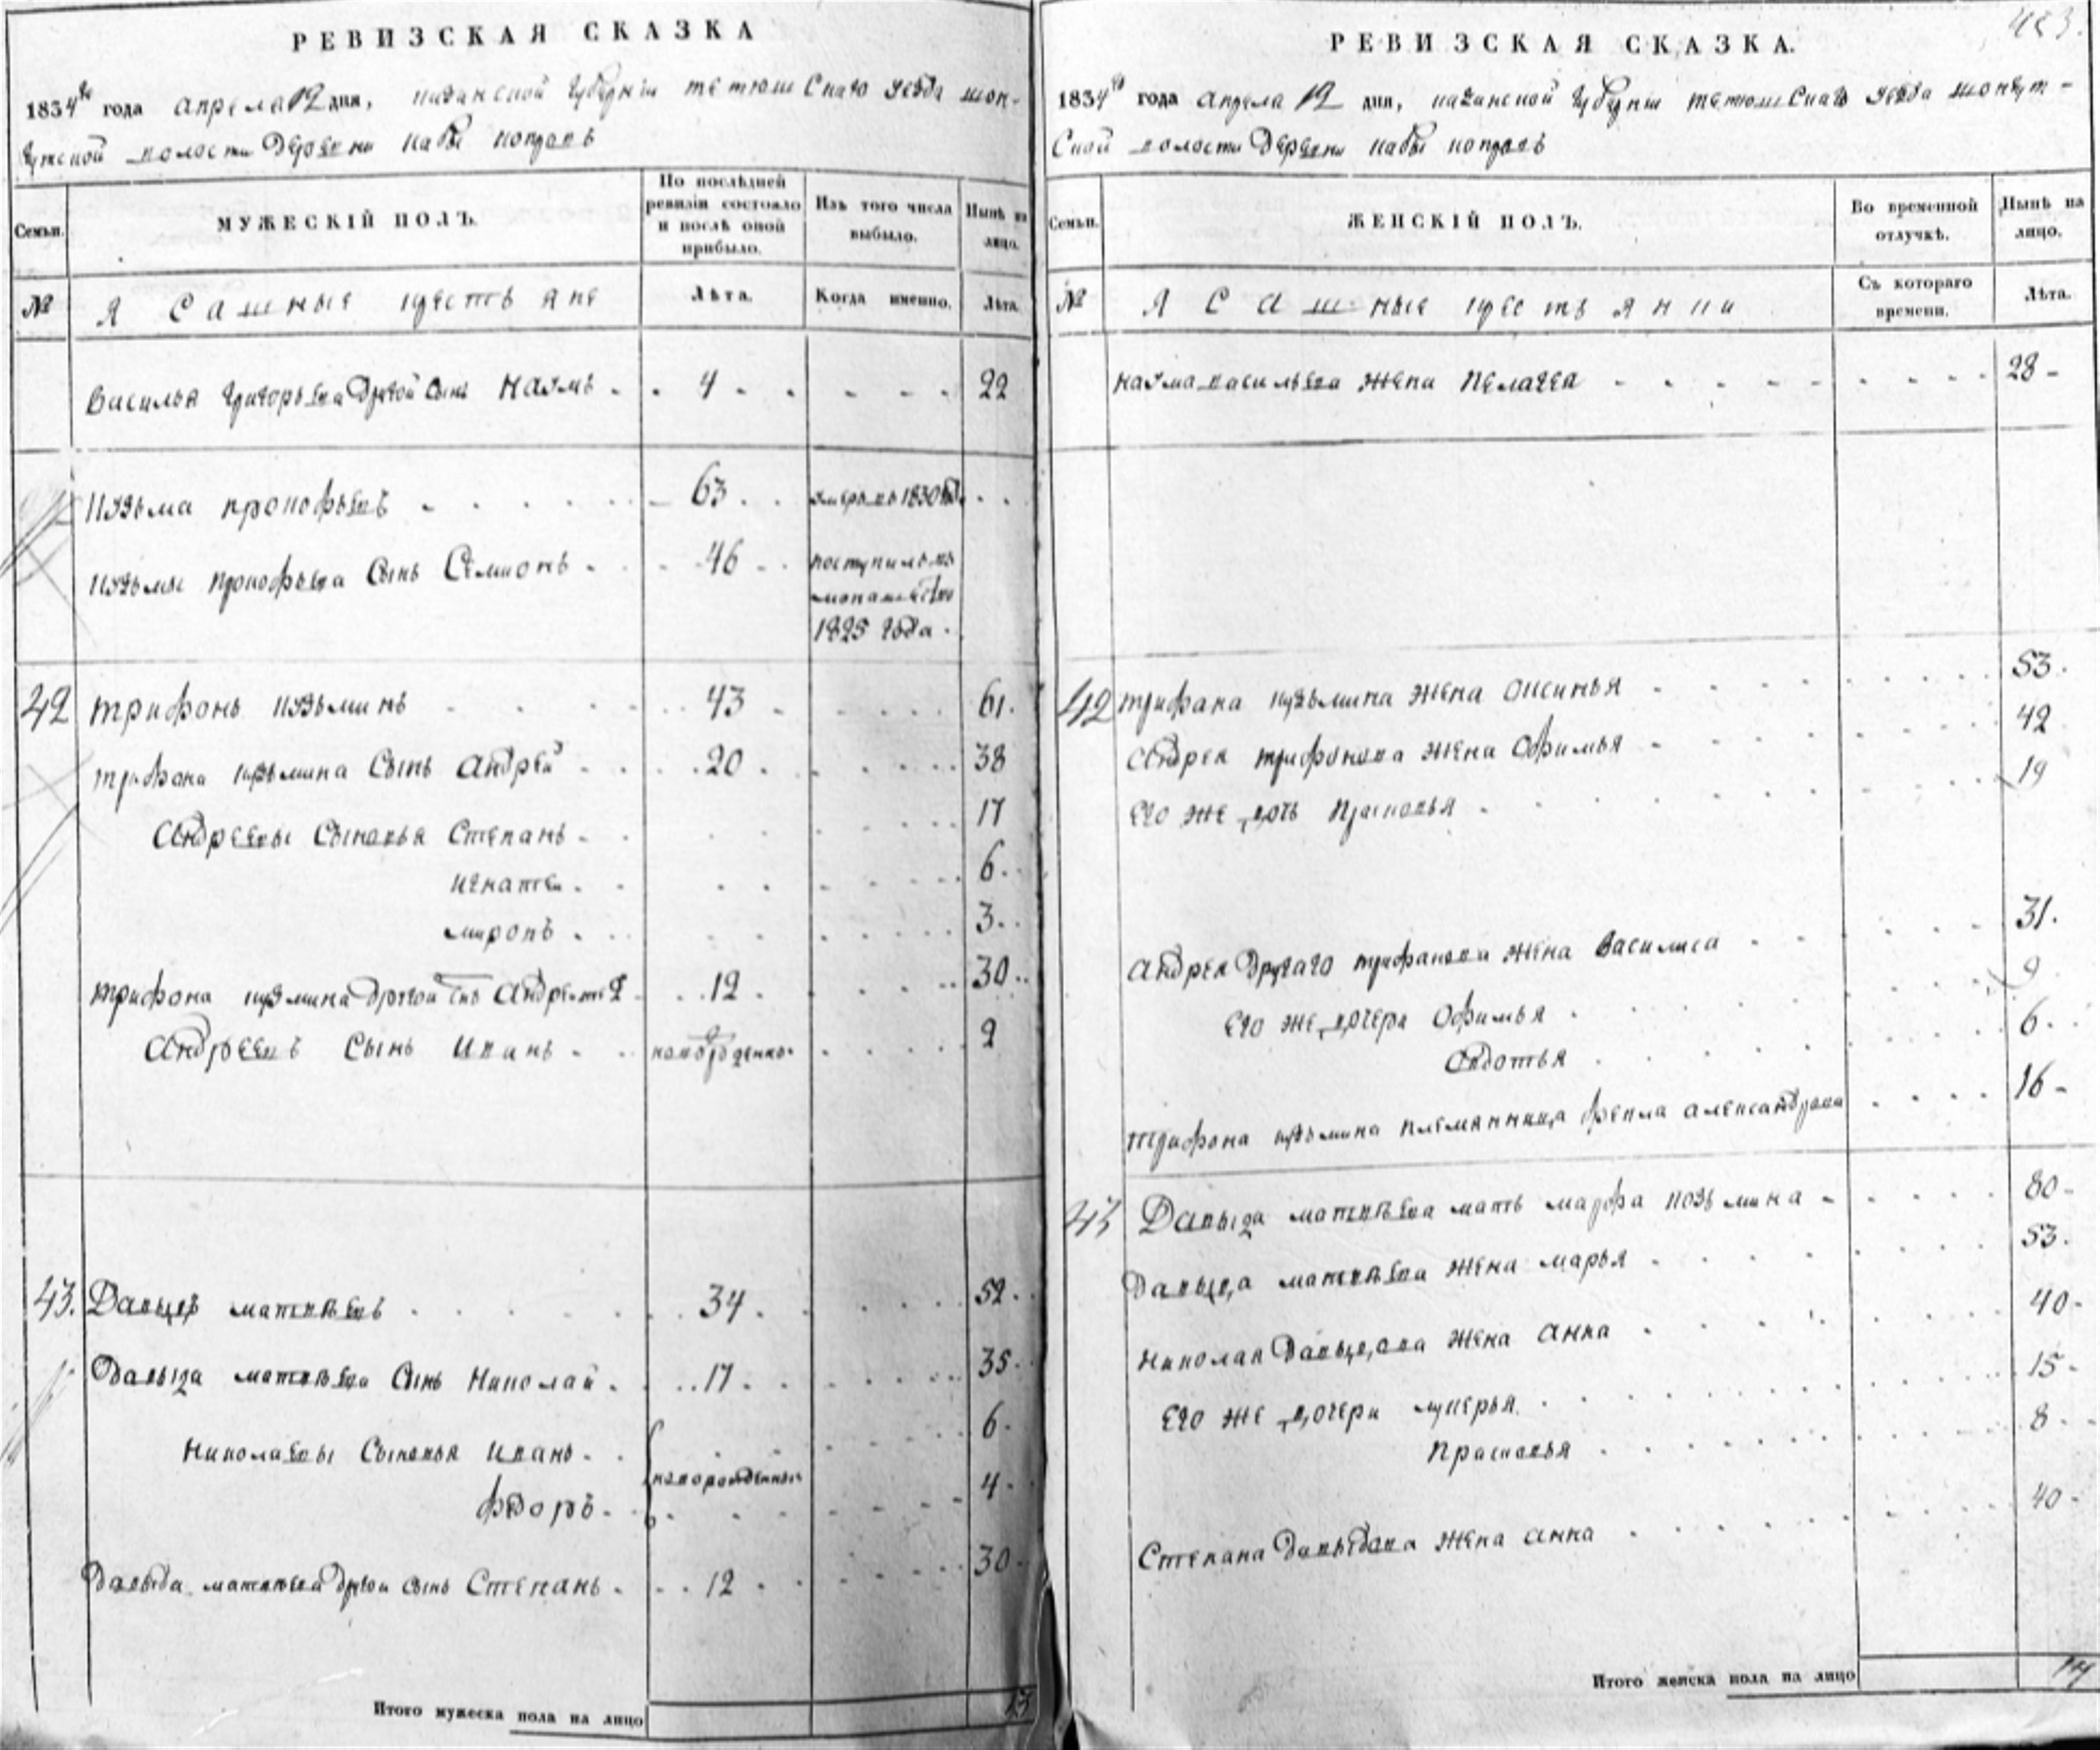 РЕВИЗСКАЯ СКАЗКА
1834го года апреля 12 дня, казанской губернии тетюшскаго уезда шон-
гутской волости деревни кабы копрокъ
Семьи.
МУЖЕСКІЙ ПОЛЪ.
По послѣдней ревизіи состояло и послѣ оной прибыло.
Изъ того числа выбыло.
Нынѣ на лицо.
№
Ясашные крестьяне
Лѣта.
Когда именно.
Лѣта.
Василья григорьева другой сынъ наумъ 4 22
кузьма прокофьевъ 63 умеръ въ 1830 год.
кузьмы прокофьева сынъ Семионъ 46 поступилъ въ
монашество
1825 года
42 трифонъ кузьминъ 43 61
трифона кузьмина сынъ андрей 20 38
андреевы сыновья Степанъ 17
игнатей 6
миронъ 3
трифона кузмина другой снъ андрей 12 30
андреевъ сынъ иванъ новорожденно 2
43. Давыдъ матвѣевъ 34 52
Давыда матвѣева сынъ николай 17 35
николаевы сыновья иванъ 6
новорожденныя
фѣдоръ 4
давыда матвѣева другой сынъ Степанъ 12 30
Итого мужеска пола на лицо 13
423.
РЕВИЗСКАЯ СКАЗКА.
1834го года апреля 12 дня, казанской губернии тетюшскаго уезда шонгут-
ской волости деревни кабы копрокъ
Семьи.
ЖЕНСКІЙ ПОЛЪ.
Во временной отлучкѣ.
Нынѣ на лицо.
№
Ясашные крестьянки
Съ котораго времени.
Лѣта.
наума васильева жена пелагея 28
42 трифана кузьмина жена оксинья 53
андрея трифонова жена офимья 42
его же дочь прасковья 19
андрея другаго трифанова жена василиса 31
его же дочери офимья 9
овдотья 6
трифона кузьмина племянница фекла александрова 16
43 Давыда матвѣева мать марфа козьмина 80
давыда матвѣева жена марья 53
николая давыдова жена анна 40
его же дочери лукерья 15
прасковья 8
Степана давыдова жена анна 40
Итого женска пола на лицо 14